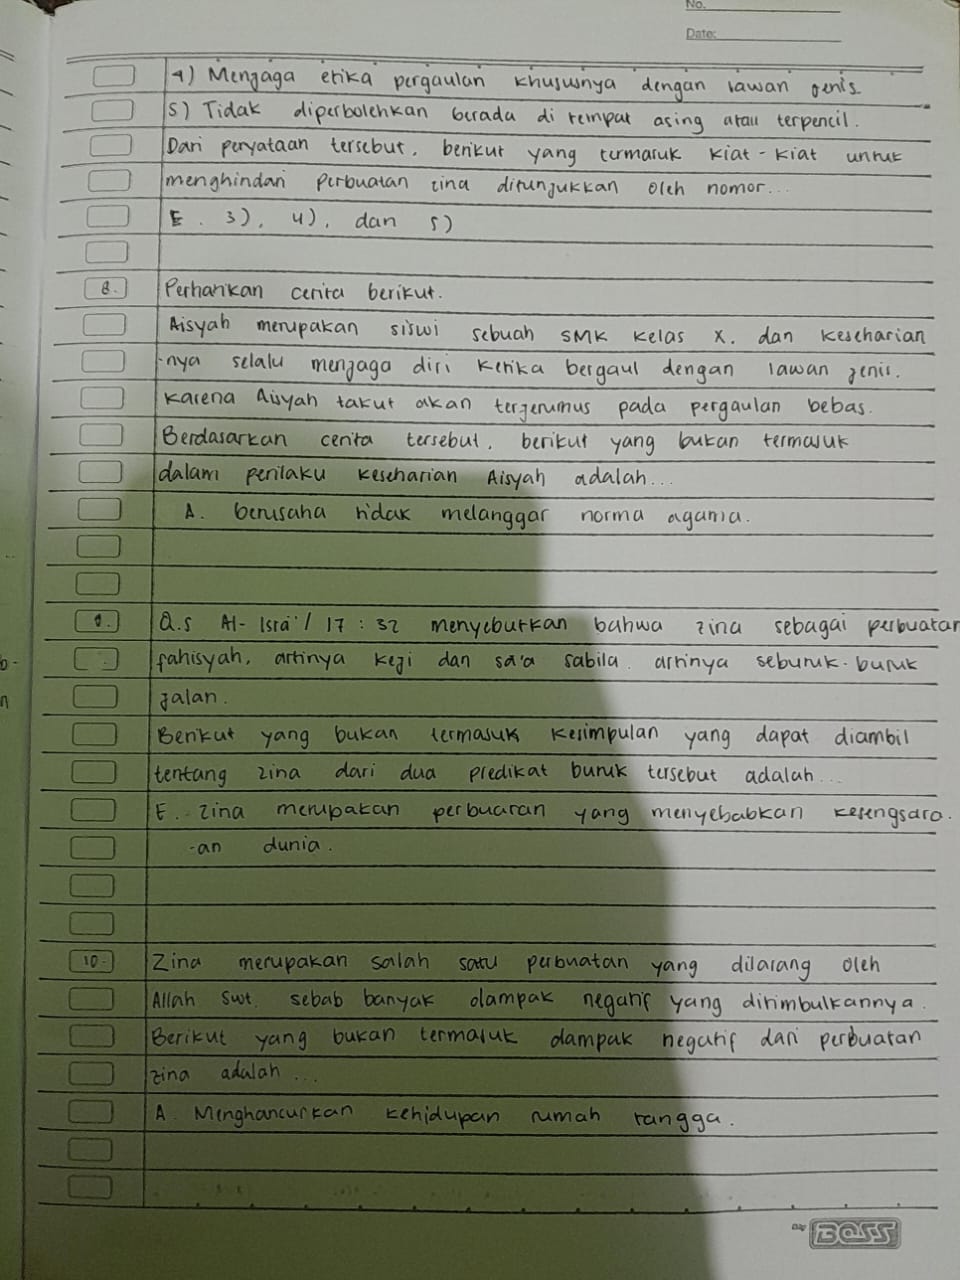 No.
Date:
4) Menjaga etika pergaulan khususnya dengan lawan jenis
5) Tidak diperbolehkan berada di tempat asing atau terpencil.
Dari peryataan tersebut, berikut yang termasuk kiat-kiat untuk
menghindari perbuatan zina ditunjukkan oleh nomor...
E. 3), 4), dan 5)
8. Perhatikan cerita berikut.
Aisyah merupakan siswi sebuah SMK kelas X. dan keseharian
-nya selalu menjaga diri ketika bergaul dengan lawan jenis.
karena Aisyah takut akan terjerumus pada pergaulan bebas.
Berdasarkan cerita tersebut, berikut yang bukan termasuk
dalam perilaku keseharian Aisyah adalah...
A. berusaha tidak melanggar norma agama.
9. Q.S Al-Isra'/ 17 : 32 menyebutkan bahwa zina sebagai perbuatan
fahisyah, artinya keji dan sa'a sabila. artinya seburuk-buruk
jalan.
Berikut yang bukan termasuk kesimpulan yang dapat diambil
tentang zina dari dua predikat buruk tersebut adalah...
E. Zina merupakan perbuatan yang menyebabkan kesengsara-
-an dunia.
10. Zina merupakan salah satu perbuatan yang dilarang oleh
Allah swt. sebab banyak dampak negatif yang ditimbulkannya.
Berikut yang bukan termasuk dampak negatif dari perbuatan
zina adalah...
A. Menghancurkan kehidupan rumah tangga.
BOSS